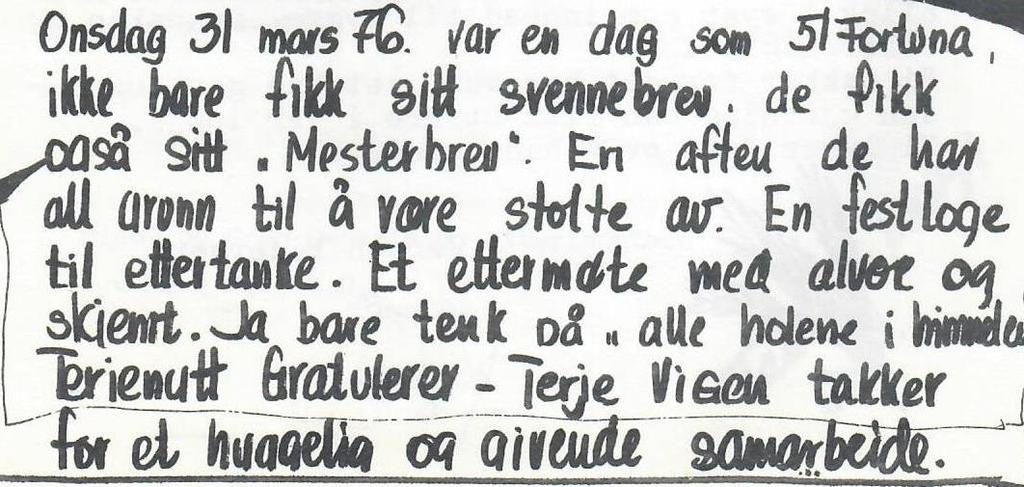 Onsdag 31 mars 76. var en dag som 51 Fortuna,
ikke bare fikk sitt svennebrev. de fikk
også sitt „Mesterbrev". En aften de har
all grunn til å være stolte av. En festloge
til ettertanke. Et ettermøte med alvor og
skjemt. Ja bare tenk på „alle hølene i himmelen
Terjenutt Gratulerer - Terje Vigen takker
for et hyggelig og givende samarbeide.